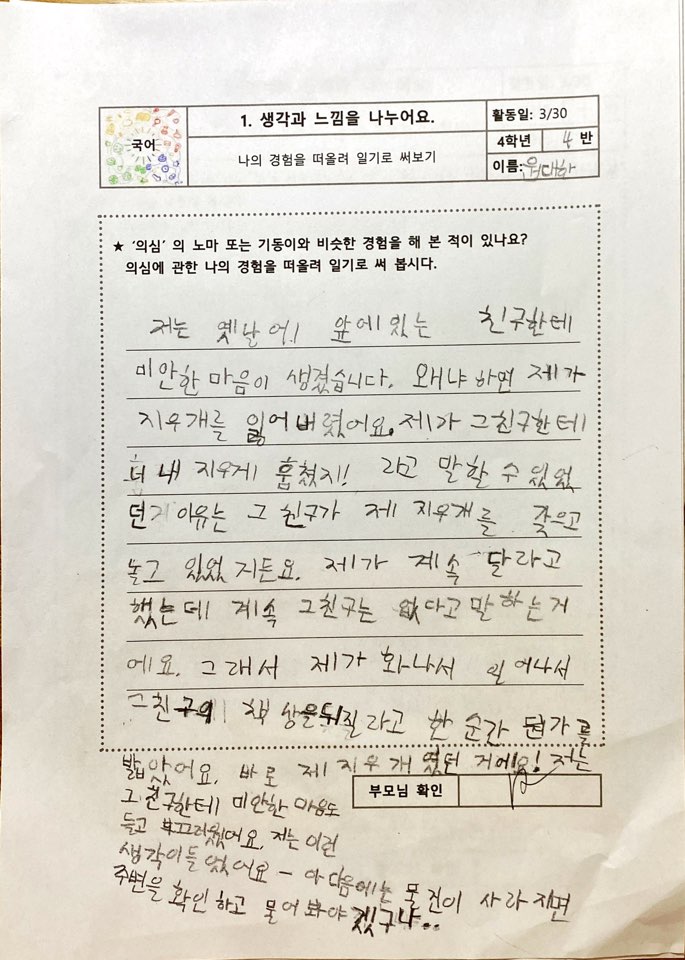 국어
1. 생각과 느낌을 나누어요.
나의 경험을 떠올려 일기로 써보기
활동일: 3/30
4학년 4 반
이름: 원대하
★ ‘의심’ 의 노마 또는 기동이와 비슷한 경험을 해 본 적이 있나요?
의심에 관한 나의 경험을 떠올려 일기로 써 봅시다.
저는 옛날에! 앞에 있는 친구한테
미안한 마음이 생겼습니다. 왜냐하면 제가
지우개를 잃어버렸어요. 제가 그친구한테
너 내 지우게 훔쳤지! 라고 말할 수 있었
던 이유는 그 친구가 제 지우개를 갖으고
놀고 있었지든요. 제가 계속 달라고
했는데 계속 그친구는 없다고 말하는거
에요. 그래서 제가 화나서 일어나서
그친구의 책상을 뒤질라고 한 순간 뭔가를
발밨았어요. 바로 제 지우개였던 거에요! 저는
그 친구한테 미안한 마음도
들고 부끄러웠어요. 저는 이런
생각이 들었어요 – 아 다음에는 물건이 사라지면
주변을 확인하고 물어봐야겠구나..
부모님 확인